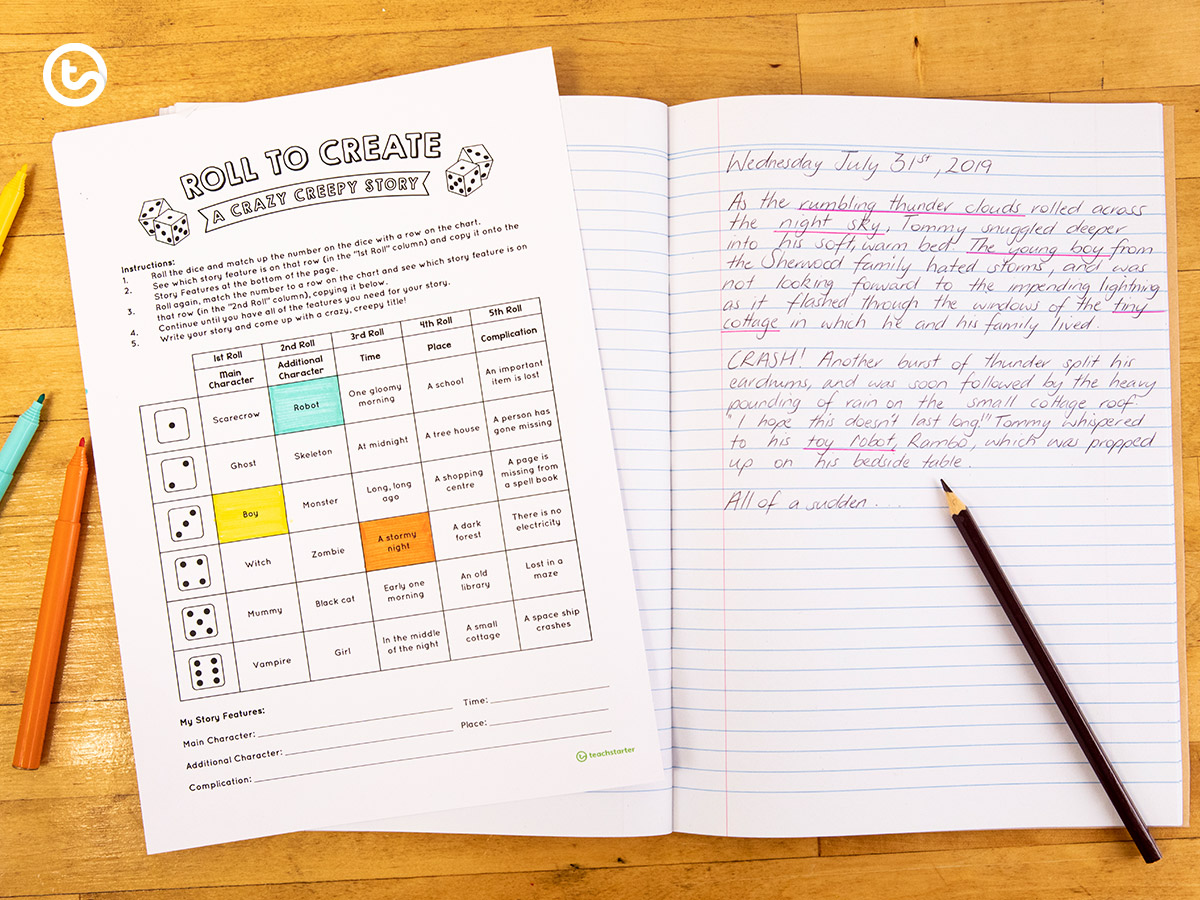 ROLL TO CREATE
A CRAZY CREEPY STORY
Instructions:
1. Roll the dice and match up the number on the dice with a row on the chart.
2. See which story feature is on that row (in the "1st Roll" column) and copy it onto the
Story Features at the bottom of the page.
3. Roll again, match the number to a row on the chart and see which story feature is on
that row (in the "2nd Roll" column), copying it below.
4. Continue until you have all of the features you need for your story.
5. Write your story and come up with a crazy, creepy title!
1st Roll 2nd Roll 3rd Roll 4th Roll 5th Roll
Main Character Additional Character Time Place Complication
Scarecrow Robot One gloomy morning A school An important item is lost
Ghost Skeleton At midnight A tree house A person has gone missing
Boy Monster Long, long ago A shopping centre A page is missing from a spell book
Witch Zombie A stormy night A dark forest There is no electricity
Mummy Black cat Early one morning An old library Lost in a maze
Vampire Girl In the middle of the night A small cottage A space ship crashes
My Story Features:
Main Character: Time:
Additional Character: Place:
Complication:
teachstarter
Wednesday July 31st, 2019
As the rumbling thunder clouds rolled across
the night sky, Tommy snuggled deeper
into his soft, warm bed. The young boy from
the Sherwood family hated storms, and was
not looking forward to the impending lightning
as it flashed through the windows of the tiny
cottage in which he and his family lived.
CRASH! Another burst of thunder split his
eardrums, and was soon followed by the heavy
pounding of rain on the small cottage roof.
"I hope this doesn't last long!" Tommy whispered
to his toy robot, Rambo, which was propped
up on his bedside table.
All of a sudden...